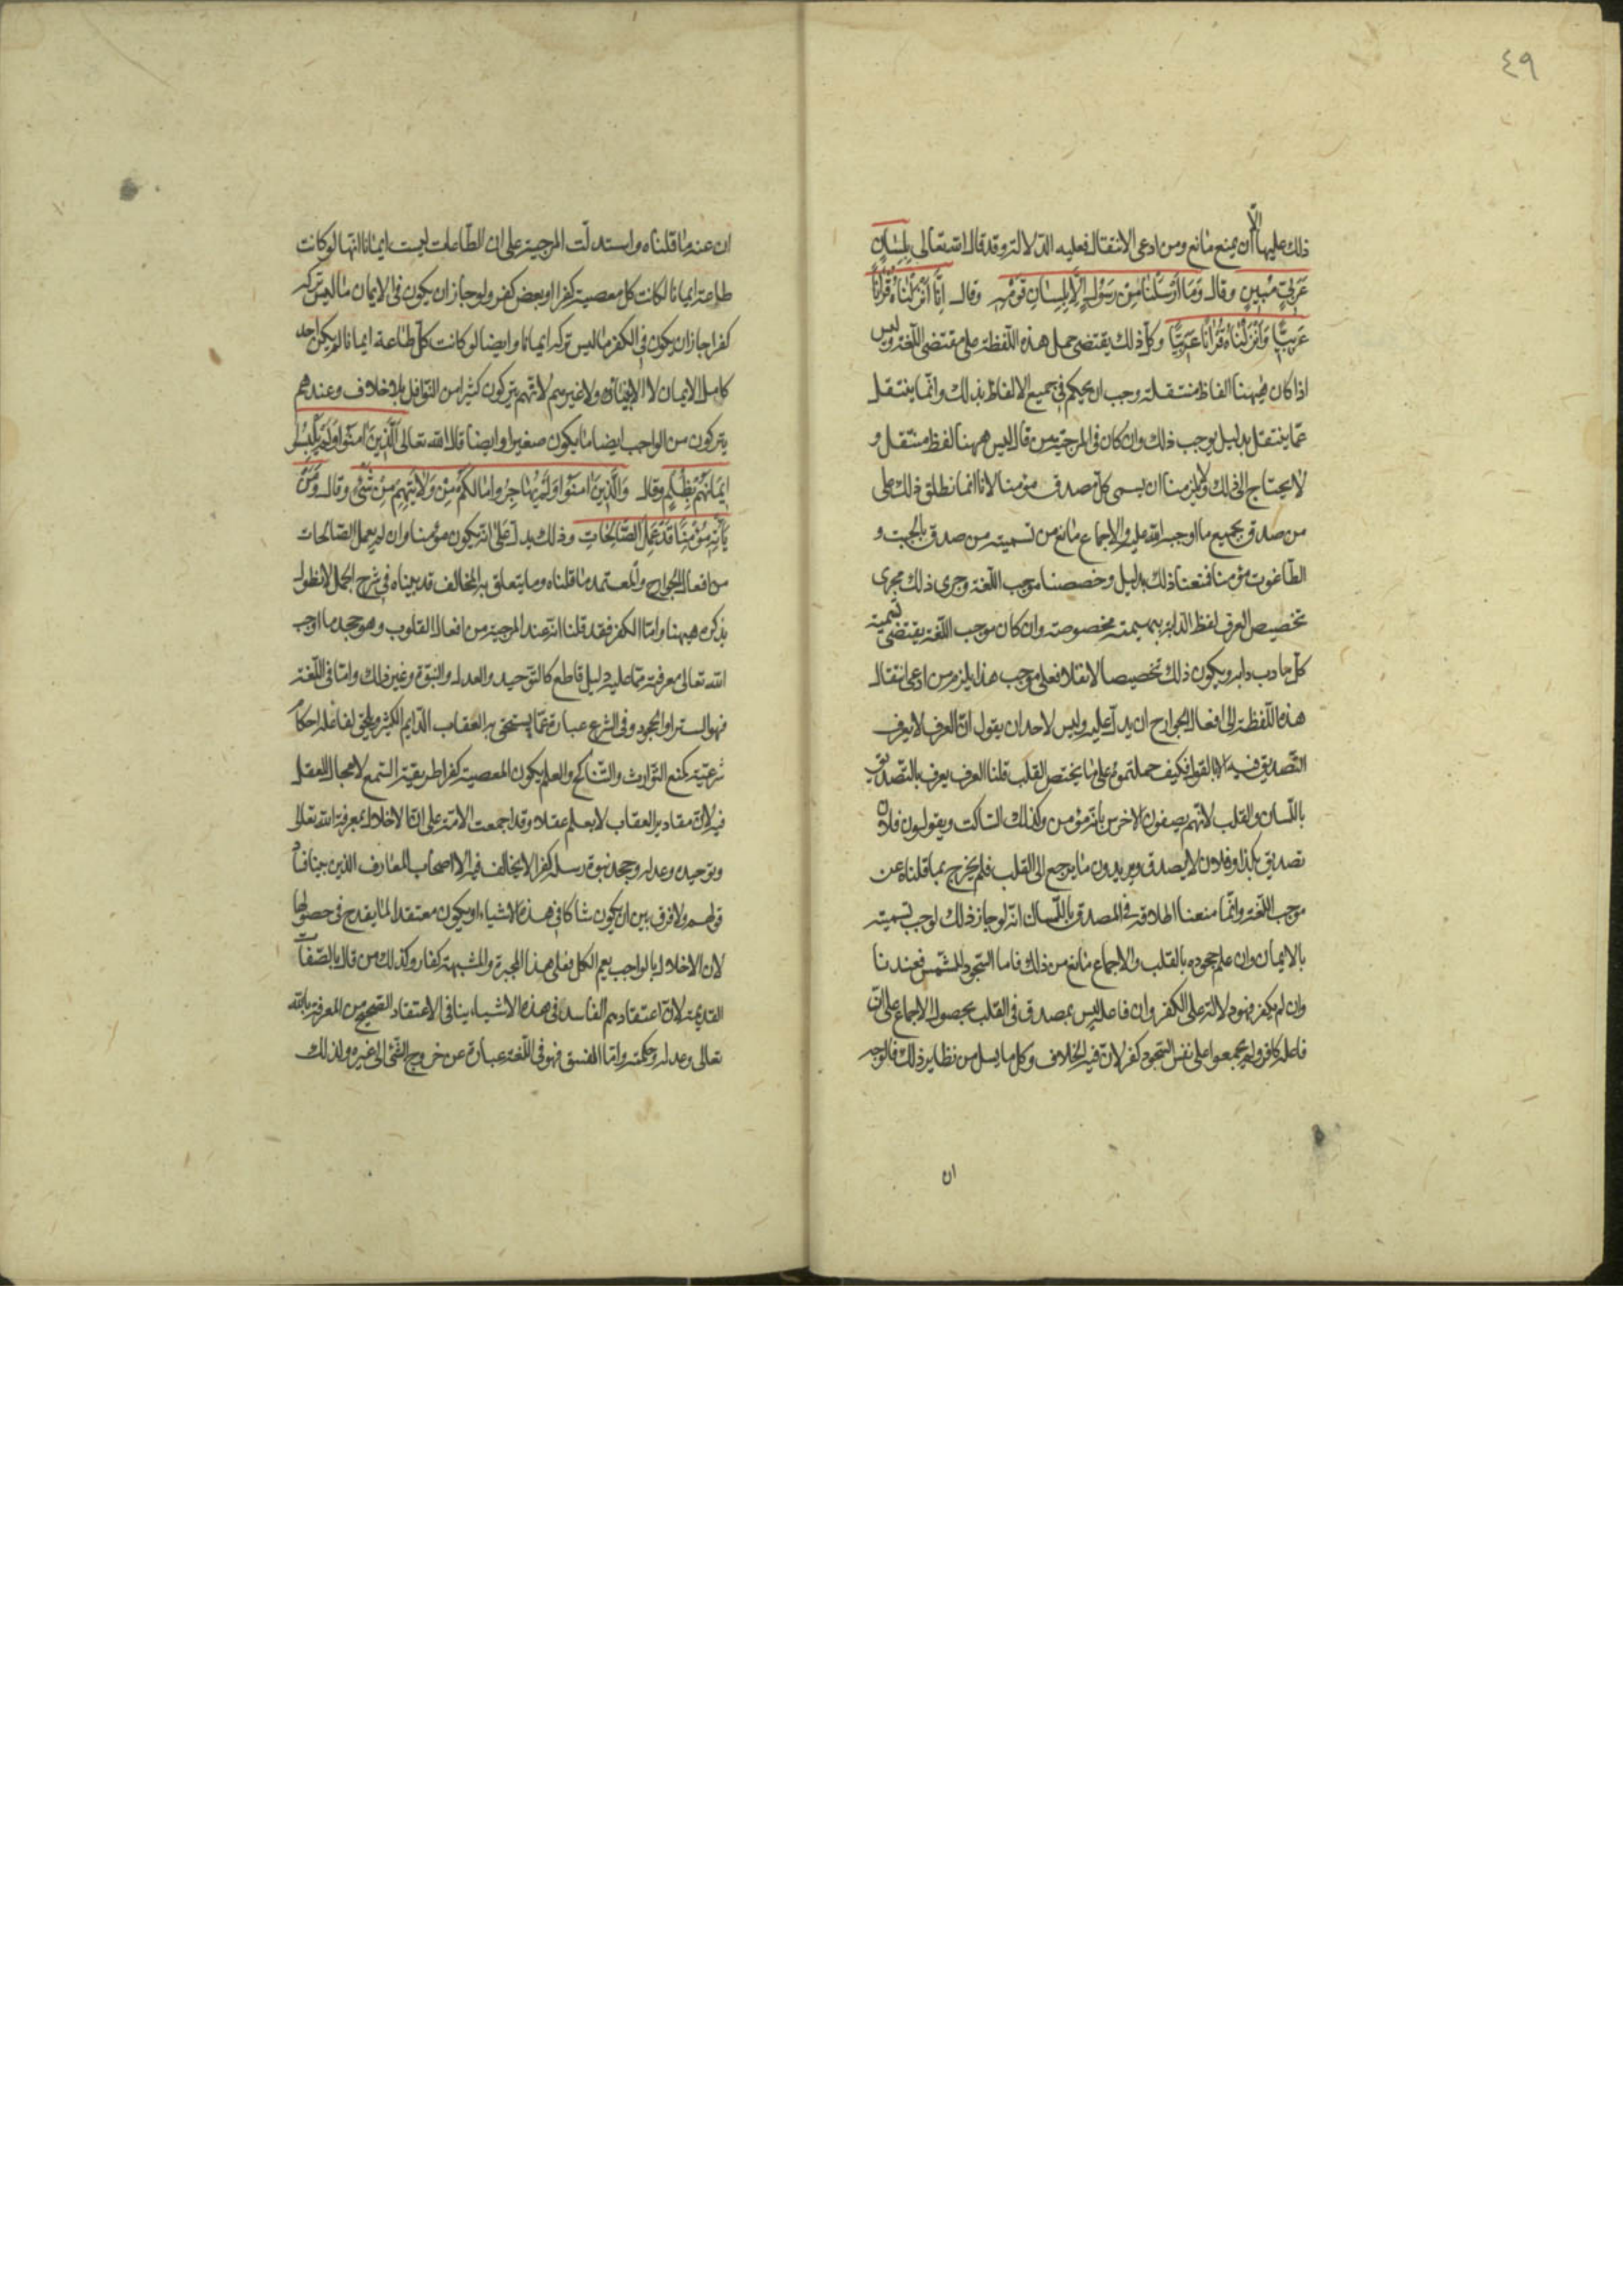 ٤٩
ذلك عليها الّا أن يمنع مانع ومن ادعى الانتقال فعليه الدّلالة وقد قال الله تعالى بِلِسَانٍ
عَرَبِيٍّ مُبِينٍ وقال وَمَا أَرْسَلْنَا مِنْ رَسُولٍ إِلَّا بِلِسَانِ قَوْمِهِ وقال إِنَّا أَنْزَلْنَاهُ قُرْآنًا
عَرَبِيًّا وَأَنْزَلْنَاهُ قُرْآنًا عَرَبِيًّا وكلّ ذلك يقتضى حمل هذه اللّفظة على مقتضى اللّغة وليس
اذا كان ههنا الفاظ منتقلة وجب ان يحكم فى جميع الالفاظ بذلك وانّما ينتقل
عمّا ينتقل بدليل يوجب ذلك وان كان فى المرجئة من قال ليس ههنا لفظ منتقل و
لا يحتاج الى ذلك ولا يلزمنا ان يسمى كلّ مصدق مؤمنا لانا انما نطلق ذلك على
من صدق بجميع ما اوجبه الله عليه والاجماع مانع من تسمية من صدق بالجبت و
الطّاغوت مؤمنا فمنعنا ذلك بدليل وخصصنا موجب اللّغة وجرى ذلك مجرى
تخصيص العرف لفظ الدّابّة ببهيمة مخصوصة وان كان موجب اللّغة يقتضى تسمية
كلّ ما دبّ دابّة ويكون ذلك تخصيصا لا نقلا فعلى موجب هذا يلزم من ادعى انتقال
هذه اللّفظة الى افعال الجوارح ان يدلّ عليه وليس لاحد ان يقول انّ العرف لا يعرف
التّصديق فيه الا بالقول فكيف حملتموه على ما يختص القلب قلنا العرف يعرف بالتّصديق
باللّسان والقلب لانّهم يصفون الاخرس بانّه مؤمن وكذلك السّاكت ويقولون فلان
تصديق بكذا وفلان لا يصدق ويريدون ما يرجع الى القلب فلم يخرج بما قلناه عن
موجب اللّغة وانّما منعنا اطلاقه فى المصدق باللّسان انّه لو جاز ذلك لوجب تسميته
بالايمان وان علم جحوده بالقلب والاجماع مانع من ذلك فاما السّجود للشّمس فعندنا
وان لم يكفر فهو دلالة على الكفر وان فاعله ليس بمصدق فى القلب بحصول الاجماع على انّ
فاعله كافر ولم يجمعوا على نفس السّجود كفر لانّ فيه الخلاف وكل ما يسل من نظاير ذلك فالوجه
ان
ان عنه ما قلناه واستدلّت المرجئة على ان الطّاعات ليست ايمانا انّها لو كانت
طاعة ايمانا لكانت كل معصية كفرا او بعض كفر ولو جاز ان يكون فى الايمان ما ليس تركه
كفرا جاز ان يكون فى الكفر ما ليس تركه ايمانا وايضا لو كانت كلّ طاعة ايمانا لم يكن احد
كامل الايمان لا الانبياء ولا غيرهم لانّهم يتركون كثيرا من النّوافل بلا خلاف وعندهم
يتركون من الواجب ايضا ما يكون صغيرا وايضا قال الله تعالى الَّذِينَ آمَنُوا وَلَمْ يَلْبِسُوا
إِيمَانَهُمْ بِظُلْمٍ وقال وَالَّذِينَ آمَنُوا وَلَمْ يُهَاجِرُوا مَا لَكُمْ مِنْ وَلَايَتِهِمْ مِنْ شَيْءٍ وقال وَمَنْ
يَأْتِهِ مُؤْمِنًا قَدْ عَمِلَ الصَّالِحَاتِ وذلك يدلّ على انّه يكون مؤمنا وان لم يعمل الصّالحات
من افعال الجوارح والمعتمد ما قلناه وما يتعلق به المخالف قد بيناه فى شرح الجمل لا نطول
بذكره هيهنا وامّا الكفر فقد قلنا انّه عند المرجئة من افعال القلوب وهو جحد ما اوجب
الله تعالى معرفته ممّا عليه دليل قاطع كالتّوحيد والعدل والنبوّة وغير ذلك وامّا فى اللّغة
فهو السّتر او الجحود وفى الشرع عبارة عمّا يستحق به العقاب الدّايم الكثير ويلحق لفاعله احكام
شرعيّة كمنع التّوارث والتّناكح والعلم بكون المعصية كفرا طريقة السّمع لا مجال للعقل
فيه لانّ مقادير العقاب لا يعلم عقلا وقد اجمعت الامّة على انّ الاخلال بمعرفة الله تعالى
وتوحيده وعدله وجحد نبوّة رسله كفر لا يخالف فيه الا اصحاب المعارف الذين بينا فساد
قولهم ولا فرق بين ان يكون شاكا فى هذه الاشياء او يكون معتقدا لما يقدح فى حصولها
لان الاخلال بالواجب يعم الكل فعلى هذا المجبرة والمشبهة كفار وكذلك من قال بالصّفات
القديمة لانّ اعتقادهم الفاسد فى هذه الاشياء ينافى الاعتقاد الصّحيح من المعرفة بالله
تعالى وعدله وحكمته وامّا الفسق فهو فى اللّغة عبارة عن خروج الشّئ الى غيره ولذلك